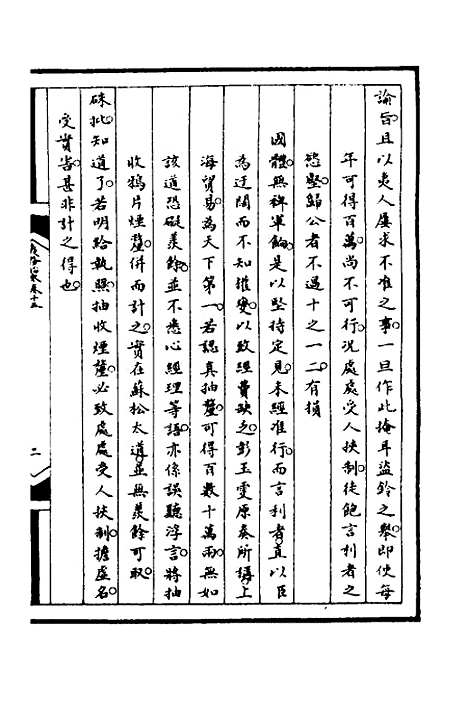 諭旨且以夷人屢求不准之事一旦作此掩耳盜鈴之舉即使每
年可得百萬尚不可行况處處受人挾制徒飽言利者之
慾壑歸公者不過十之一二有損
國體無裨軍餉是以堅持定見未經准行而言利者直以臣
為迂闊而不知權變以致經費缺乏彭玉雯原奏所稱上
海貿易為天下第一若認真抽釐可得百數十萬兩無如
該道恐礙羨餘並不悉心經理等語亦係誤聽浮言將抽
收鴉片煙釐併而計之實在蘇松太道並無羨餘可取
硃批知道了若明給執照抽收煙釐必致處處受人挾制擔虛名
受實害甚非計之得也
卷十五
二